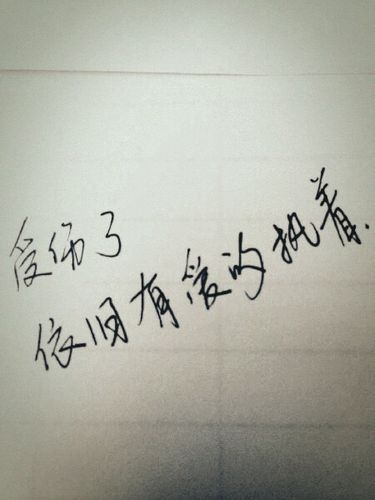 受伤了
依旧有爱的执着.